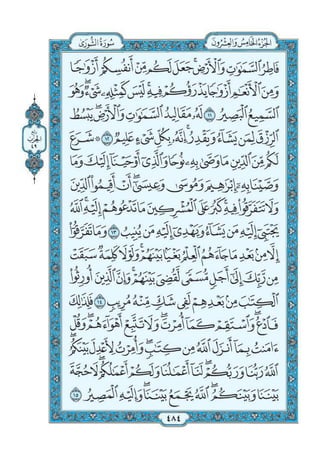 الجزء الخامس والعشرون
سورة الشورى
فَاطِرُ السَّمَوَاتِ وَالْأَرْضِ جَعَلَ لَكُم مِّنْ أَنفُسِكُمْ أَزْوَاجًا
وَمِنَ الْأَنْعَامِ أَزْوَاجًا يَذْرَؤُكُمْ فِيهِ لَيْسَ كَمِثْلِهِ شَيْءٌ وَهُوَ
السَّمِيعُ الْبَصِيرُ ١١ لَهُ مَقَالِيدُ السَّمَوَاتِ وَالْأَرْضِ يَبْسُطُ
الرِّزْقَ لِمَن يَشَاءُ وَيَقْدِرُ إِنَّهُ بِكُلِّ شَيْءٍ عَلِيمٌ ١٢ ۞ شَرَعَ
لَكُم مِّنَ الدِّينِ مَا وَصَّى بِهِ نُوحًا وَالَّذِي أَوْحَيْنَا إِلَيْكَ وَمَا
وَصَّيْنَا بِهِ إِبْرَاهِيمَ وَمُوسَى وَعِيسَى أَنْ أَقِيمُوا الدِّينَ
وَلَا تَتَفَرَّقُوا فِيهِ كَبُرَ عَلَى الْمُشْرِكِينَ مَا تَدْعُوهُمْ إِلَيْهِ اللَّهُ
يَجْتَبِي إِلَيْهِ مَن يَشَاءُ وَيَهْدِي إِلَيْهِ مَن يُنِيبُ ١٣ وَمَا تَفَرَّقُوا
إِلَّا مِن بَعْدِ مَا جَاءَهُمُ الْعِلْمُ بَغْيًا بَيْنَهُمْ وَلَوْلَا كَلِمَةٌ سَبَقَتْ
مِن رَّبِّكَ إِلَى أَجَلٍ مُّسَمًّى لَّقُضِيَ بَيْنَهُمْ وَإِنَّ الَّذِينَ أُورِثُوا
الْكِتَابَ مِن بَعْدِهِمْ لَفِي شَكٍّ مِّنْهُ مُرِيبٍ ١٤ فَلِذَلِكَ
فَادْعُ وَاسْتَقِمْ كَمَا أُمِرْتَ وَلَا تَتَّبِعْ أَهْوَاءَهُمْ وَقُلْ
ءَامَنتُ بِمَا أَنزَلَ اللَّهُ مِن كِتَابٍ وَأُمِرْتُ لِأَعْدِلَ بَيْنَكُمُ
اللَّهُ رَبُّنَا وَرَبُّكُمْ لَنَا أَعْمَالُنَا وَلَكُمْ أَعْمَالُكُمْ لَا حُجَّةَ
بَيْنَنَا وَبَيْنَكُمُ اللَّهُ يَجْمَعُ بَيْنَنَا وَإِلَيْهِ الْمَصِيرُ ١٥
٤٨٤